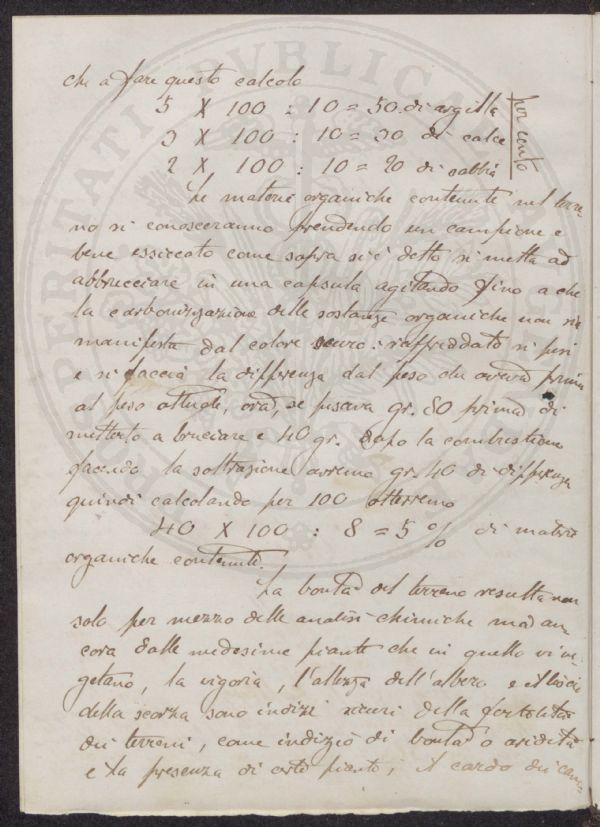 che a fare questo calcolo
5 X 100 : 10 = 50. di argilla
3 X 100 : 10 = 30 di calce
2 X 100 : 10 = 20 di sabbia
per cento
Le materie organiche contenute nel terre-
no si conosceranno prendendo un campione e
bene essiccato come sopra si è detto si metta ad
abbrucciare in una capsula agitando fino a che
la carbonizzazione delle sostanze organiche non sia
manifesta dal colore scuro: raffreddato si pesi
e si faccia la differenza dal peso che aveva prima
al peso attuale, ora, se pesava gr. 80 prima di
metterlo a bruciare e 40 gr. dopo la combustione
facendo la sottrazione avremo gr. 40 di differenza
quindi calcolando per 100 otterremo
40 X 100 : 8 = 5 % di materie
organiche contenute.
La bontà del terreno resulta non
solo per mezzo delle analisi chimiche ma an-
cora dalle medesime piante che in quello vi ve-
getano, la vigoria, l'altezza dell'albero e il liscio
della scorza sono indizi sicuri della fertilità
dei terreni, come indizio di bontà o aridità
e la presenza di certe piante; il cardo dei